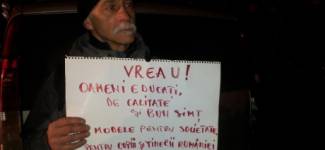 VREAU!
OAMENI EDUCAȚI,
DE CALITATE
ȘI BUN SIMȚ
MODELE PENTRU SOCIETATE
PENTRU COPIII ȘI TINERII ROMÂNIEI